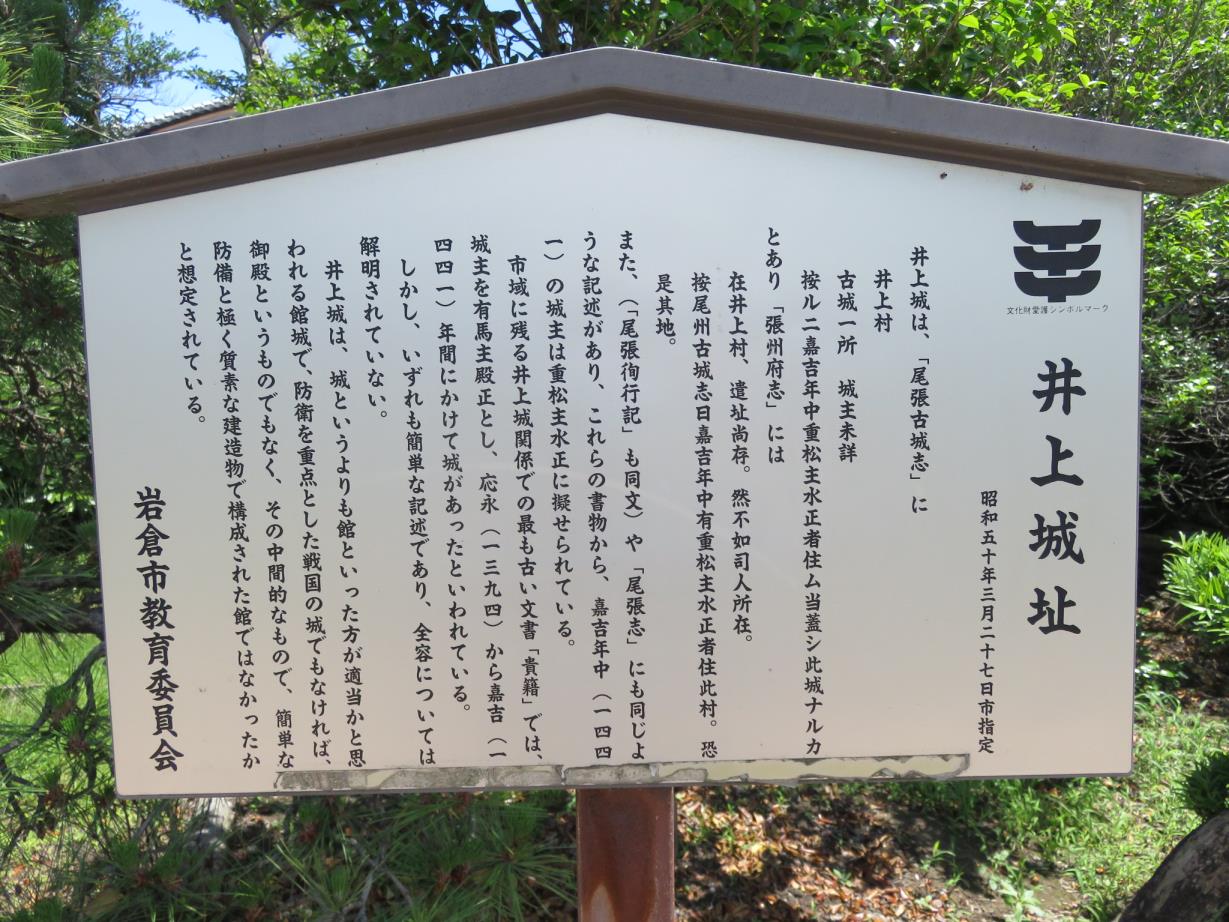 文化財愛護シンボルマーク
井上城址
昭和五十年三月二十七日市指定
井上城は、「尾張古城志」に
井上村
古城一所　城主未詳
按ルニ嘉吉年中重松主水正者住ム当蓋シ此城ナルカ
とあり「張州府志」には
在井上村、遺址尚存。然不如司人所在。
按尾州古城志日嘉吉年中有重松主水正者住此村。恐
是其地。
また、（「尾張徇行記」も同文）や「尾張志」にも同じよ
うな記述があり、これらの書物から、嘉吉年中（一四四
一）の城主は重松主水正に擬せられている。
市域に残る井上城関係での最も古い文書「貴籍」では、
城主を有馬主殿正とし、応永（一三九四）から嘉吉（一
四四一）年間にかけて城があったといわれている。
しかし、いずれも簡単な記述であり、全容については
解明されていない。
井上城は、城というよりも館といった方が適当かと思
われる館城で、防衛を重点とした戦国の城でもなければ、
御殿というものでもなく、その中間的なもので、簡単な
防備と極く質素な建造物で構成された館ではなかったか
と想定されている。
岩倉市教育委員会